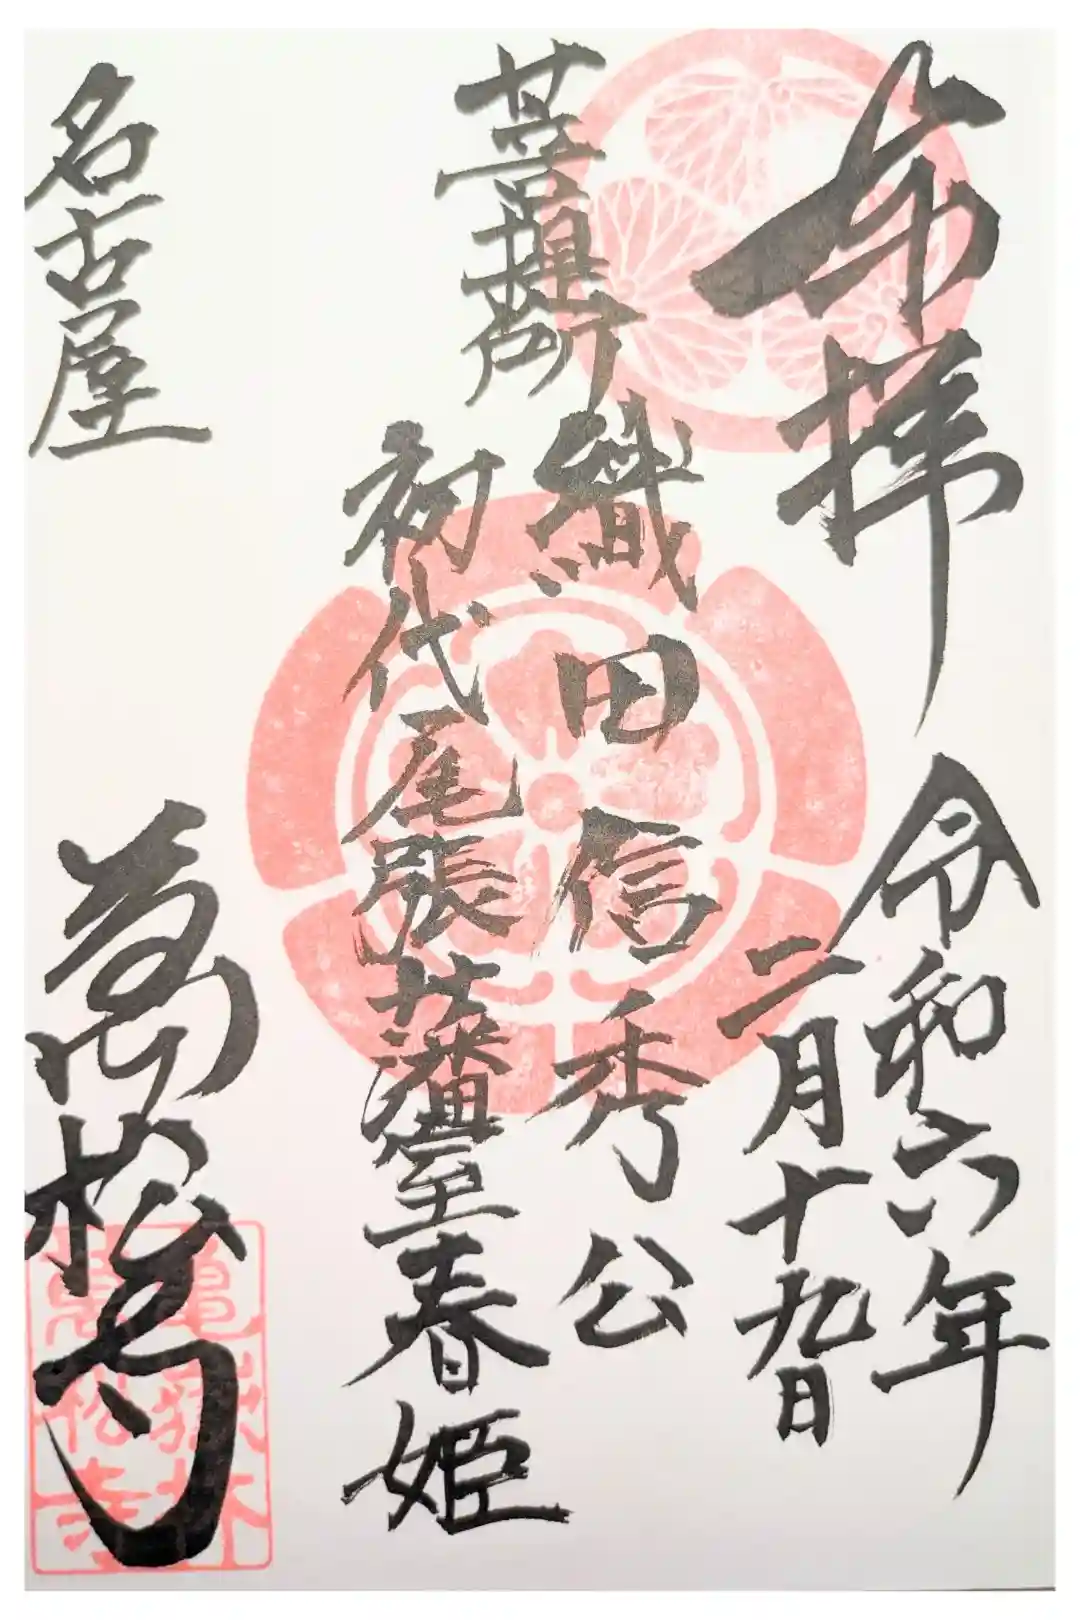 奉拝
令和六年
二月十九日
菩提所
織田信秀公
初代尾張藩室春姫
名古屋
萬松寺
亀嶽林
萬松寺